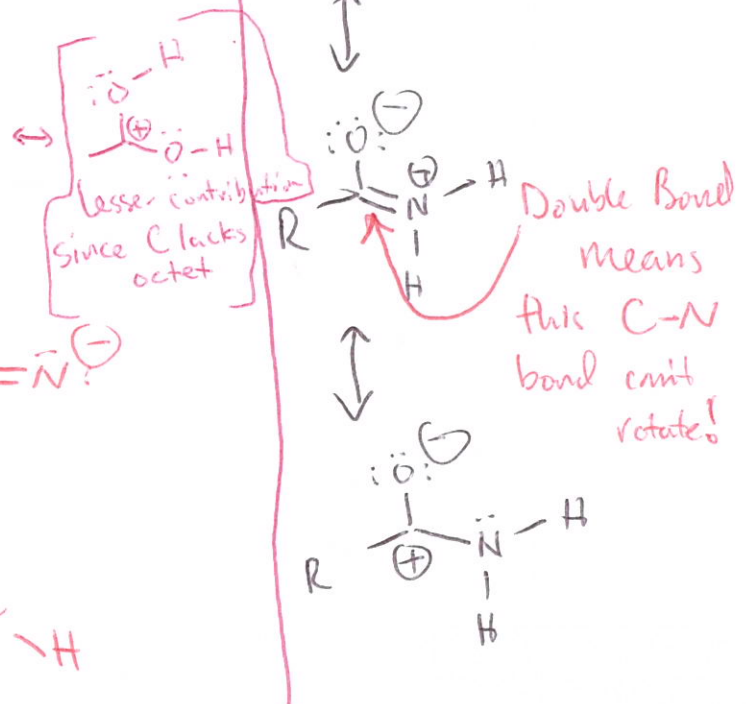 H
:Ö
⊕
Ö-H
Lesser contribution
Since C lacks
octet
=N̈:⊖
H
:Ö:⊖
⊕
R
N
H
H
Double Bond
means
this C-N
bond can't
rotate!
:Ö:⊖
R
⊕
N̈
H
H